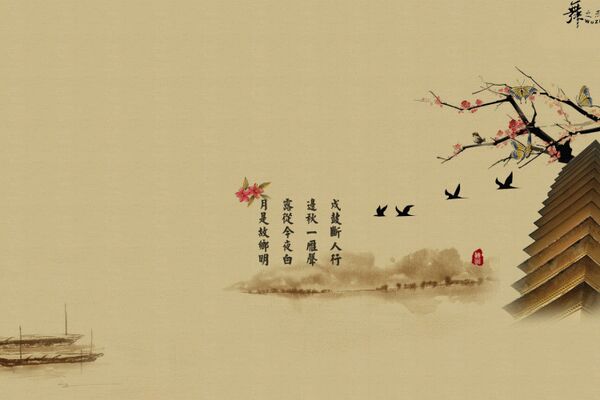 戍鼓斷人行
邊秋一雁聲
露從今夜白
月是故鄉明
舞之